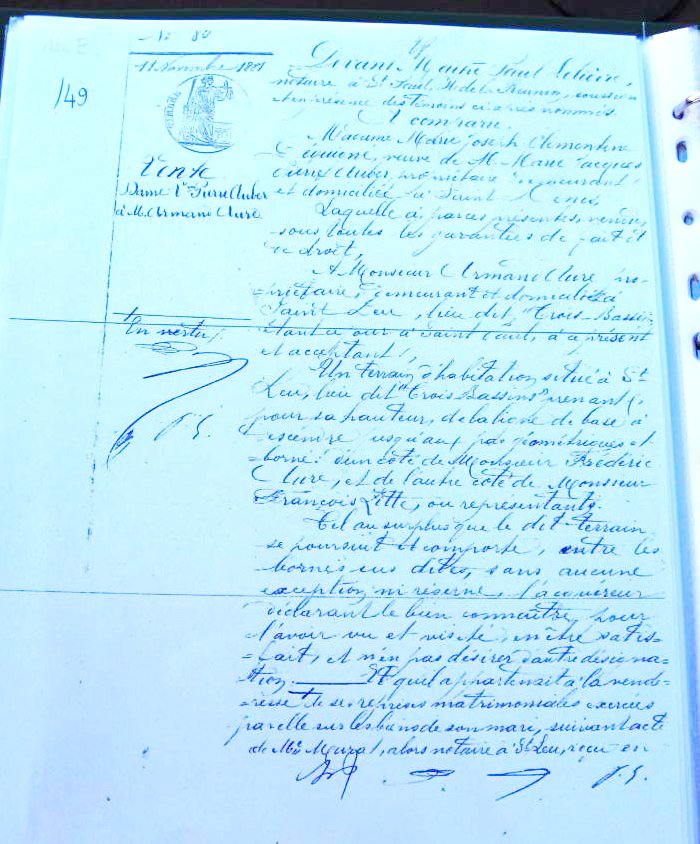 No 80
11 Novembre 1881
149
Vente
Dame Ve Pierre Auber
à M. Armand Clure
En vertu
P. G.
Devant Maître Paul
notaire à St Paul, Ile de la Réunion, soussi
et en présence des témoins ci-après nommés.
A comparu:
Madame Marie Joseph Clémentine
veuve de M. Marie Jacques
Pierre Auber, propriétaire demeurant
et domiciliée à Saint-Denis
Laquelle a, par ces présentes, vendu,
sous toutes les garanties de fait et
de droit,
A Monsieur Armand Clure pro-
=priétaire, demeurant et domicilié à
Saint Leu, lieu dit, "Trois-Bassins,
étant ce jour à Saint Paul, à ce présent
et acceptant,
Un terrain d'habitation situé à St
Leu, lieu dit "Trois Bassins" prenant
pour sa hauteur, de la ligne de base à
descendre jusqu'aux pas géométriques et
borné: d'un côté de Monsieur Frédéric
Clure, et de l'autre côté de Monsieur
François Litte, ou représentants.
Tel au surplus que le dit terrain
se poursuit et comporte, entre les
bornes sus dites, sans aucune
exception ni réserve, l'acquéreur
déclarant le bien connaître, pour
l'avoir vu et visité, en être satis=
=fait, et n'en pas désirer d'autre désigna=
=tion. Et quel appartenait à la vende=
=resse de ses reprises matrimoniales exercées
par elle sur les biens de son mari, suivant acte
de Me Mural, alors notaire à St Leu, reçu en
P. G.